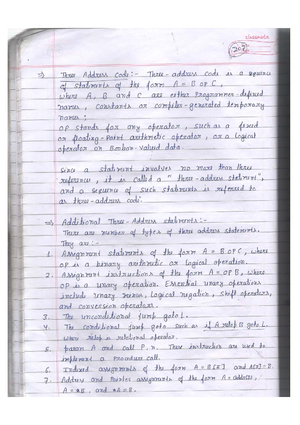 202
⇒ Three Address Code:- Three-address code is a sequence
of statments of the form A = B OP C,
where A, B and C are either Programmer-defined
names, constants or compiler-generated temporary
names;
OP stands for any operator, such as a fixed
or floating-Point arithmetic operator, or a logical
operator on Boolean-valued data.
Since a statment involves no more than three
references, it is called a "three-address statment",
and a sequence of such statments is referred to
as three-address code.
⇒ Additional Three-Address statments:-
There are number of types of three address statements.
They are:-
1. Assignment statements of the form A = B OP C, where
OP is a binary arithmetic or logical operation.
2. Assignment instructions of the form A = OP B, where
OP is a unary operation. Essential unary operations
include unary minus, logical negation, shift operators,
and conversion operators.
3. The unconditional jump goto L.
4. The conditional jump goto such as if A relop B goto L.
where relop is relational operator.
5. param A and call P, n. These instructions are used to
implement a Procedure call.
6. Indexed assignments of the form A = B[I] and A[I] = B.
7. Address and Pointer assignments of the form A = address,
A = *B, and *A = B.